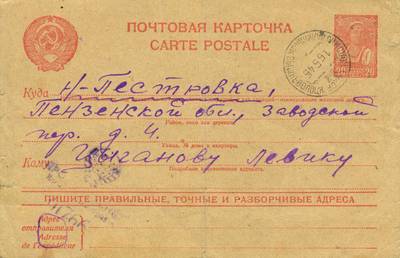 ПОЧТОВАЯ КАРТОЧКА
CARTE POSTALE
Куда Н-Пестровка,
Пензенской обл., Заводской
Район, село или деревня
пер. д. 4.
Улица, № дома и квартиры
Кому Цыганову Левику
Подробное наименование адресата
ПИШИТЕ ПРАВИЛЬНЫЕ, ТОЧНЫЕ И РАЗБОРЧИВЫЕ АДРЕСА
Адрес
отправителя
Adresse
de l'expéditeur